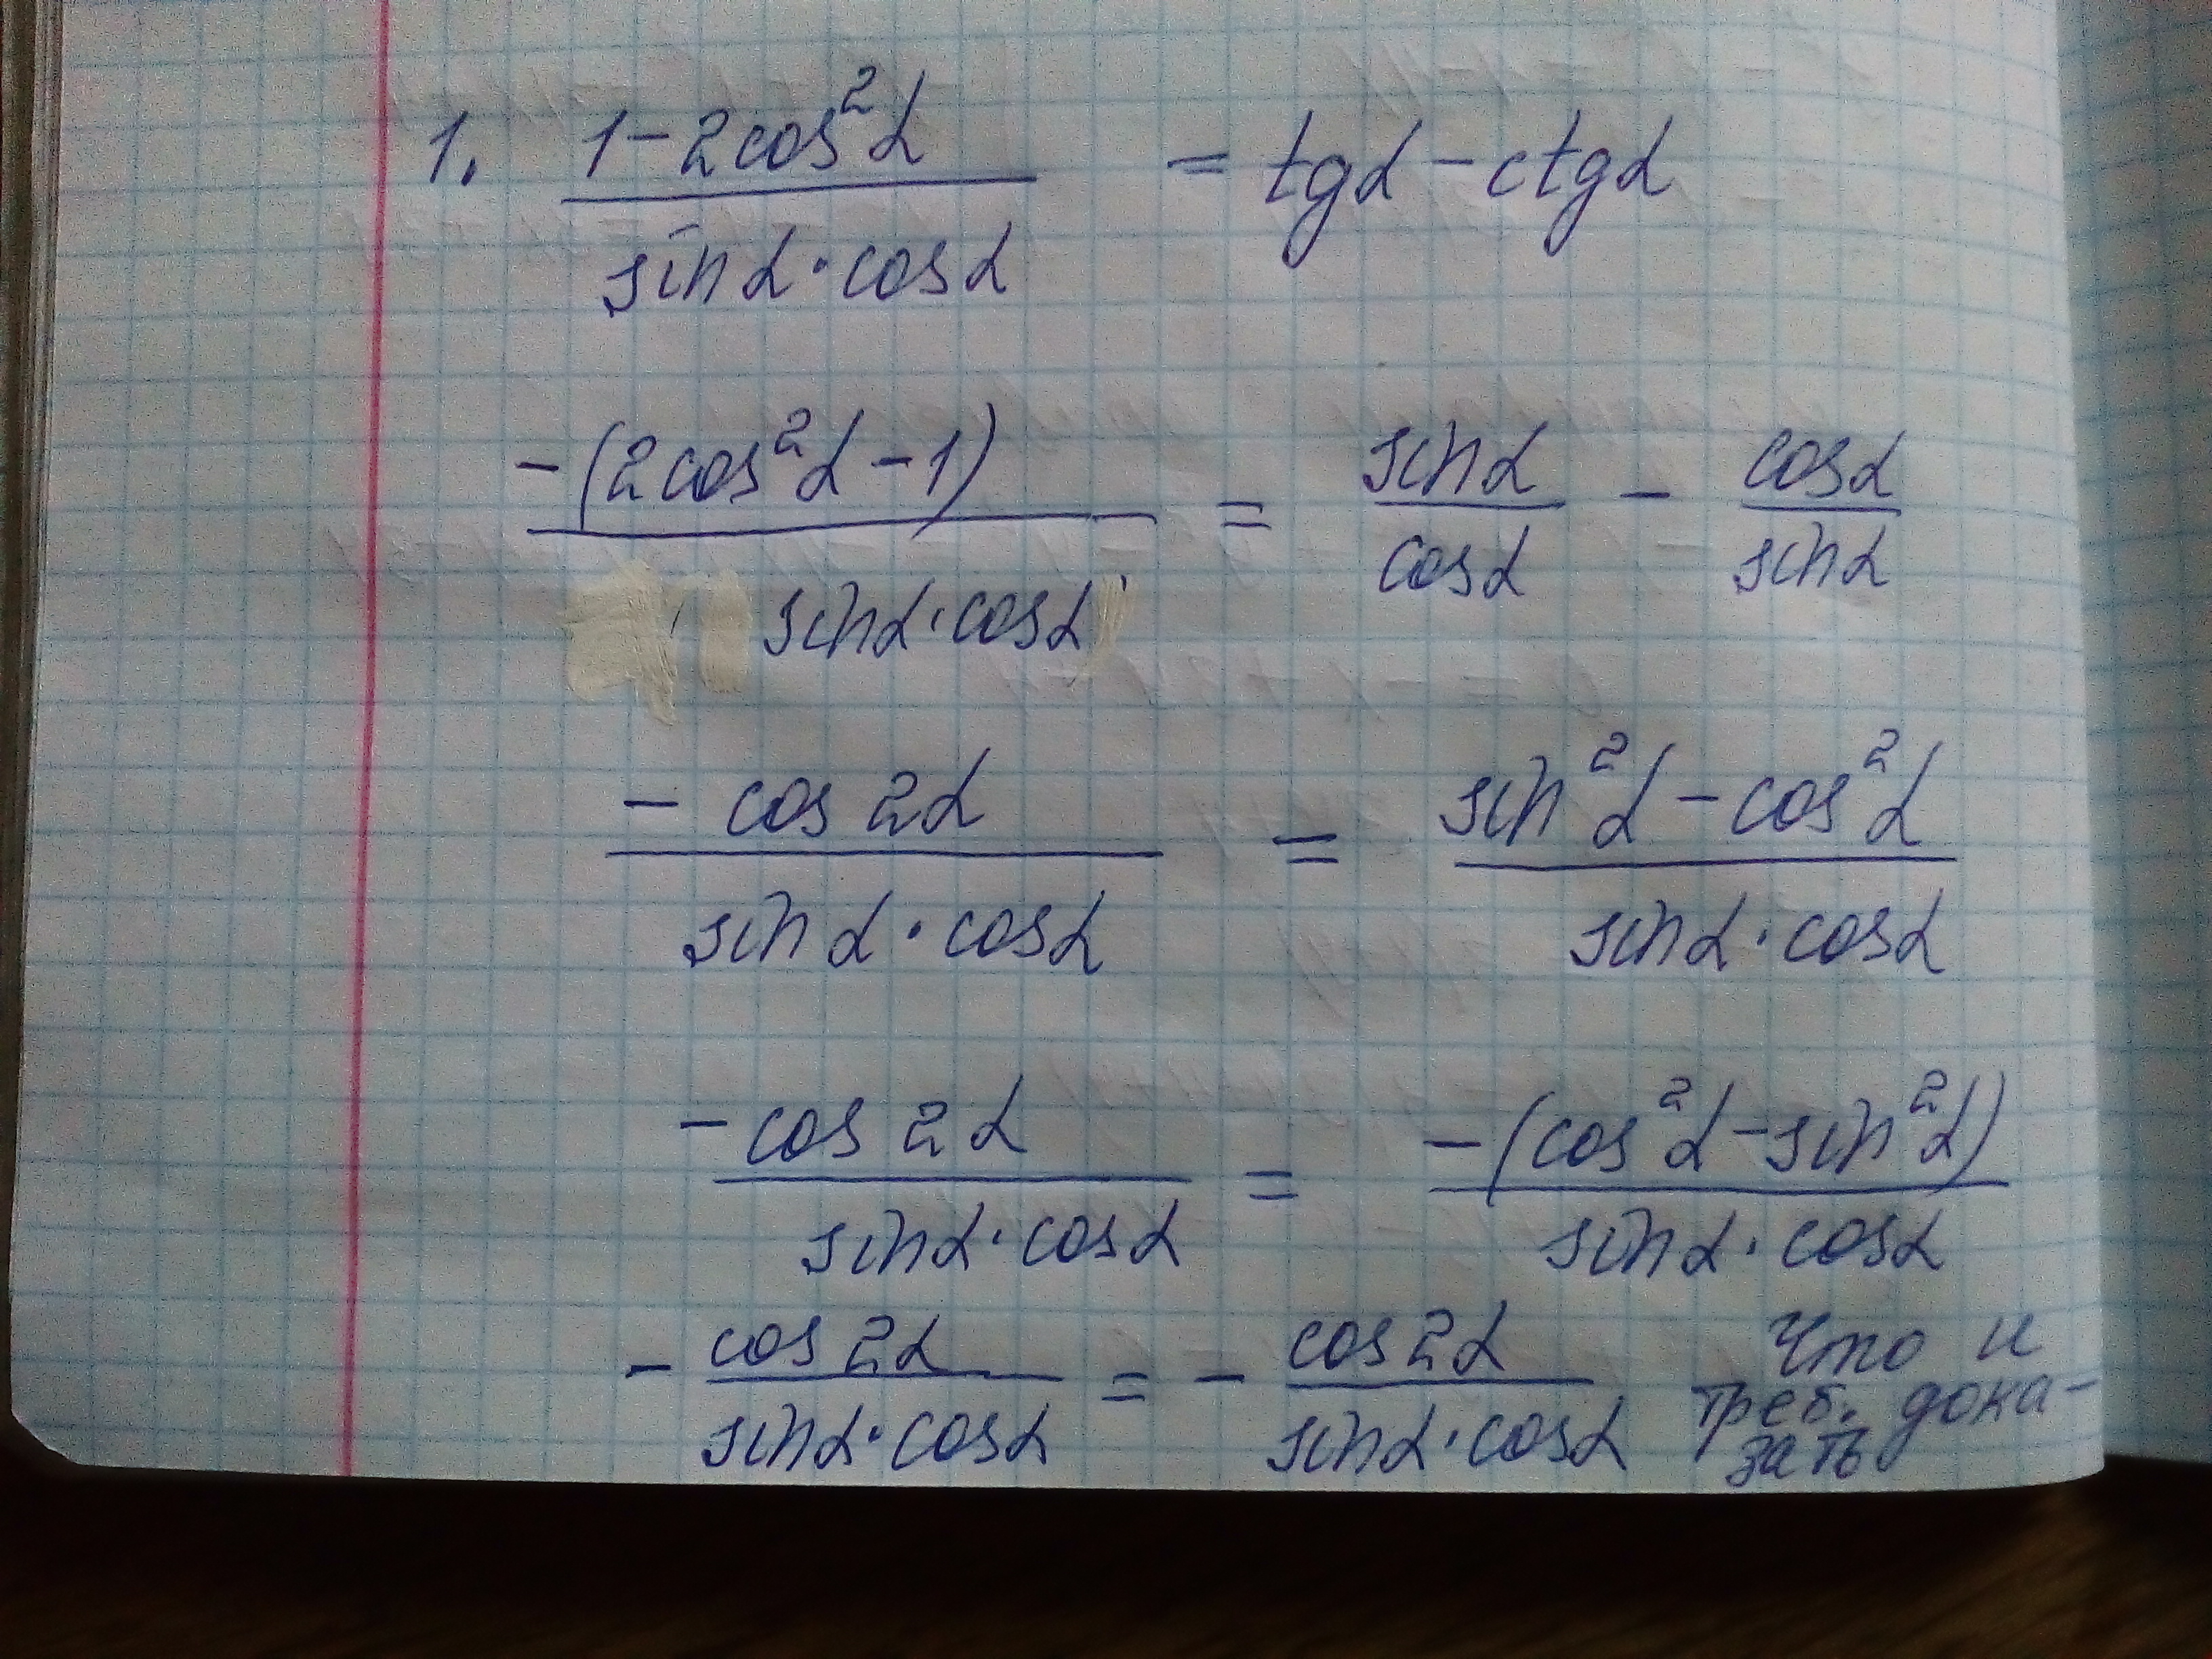 1. (1-2cos²α)/(sinα·cosα) = tgα-ctgα
-(2cos²α-1)/(sinα·cosα) = sinα/cosα - cosα/sinα
-cos2α/(sinα·cosα) = (sin²α-cos²α)/(sinα·cosα)
-cos2α/(sinα·cosα) = -(cos²α-sin²α)/(sinα·cosα)
-cos2α/(sinα·cosα) = -cos2α/(sinα·cosα) Что и
треб. дока-
зать